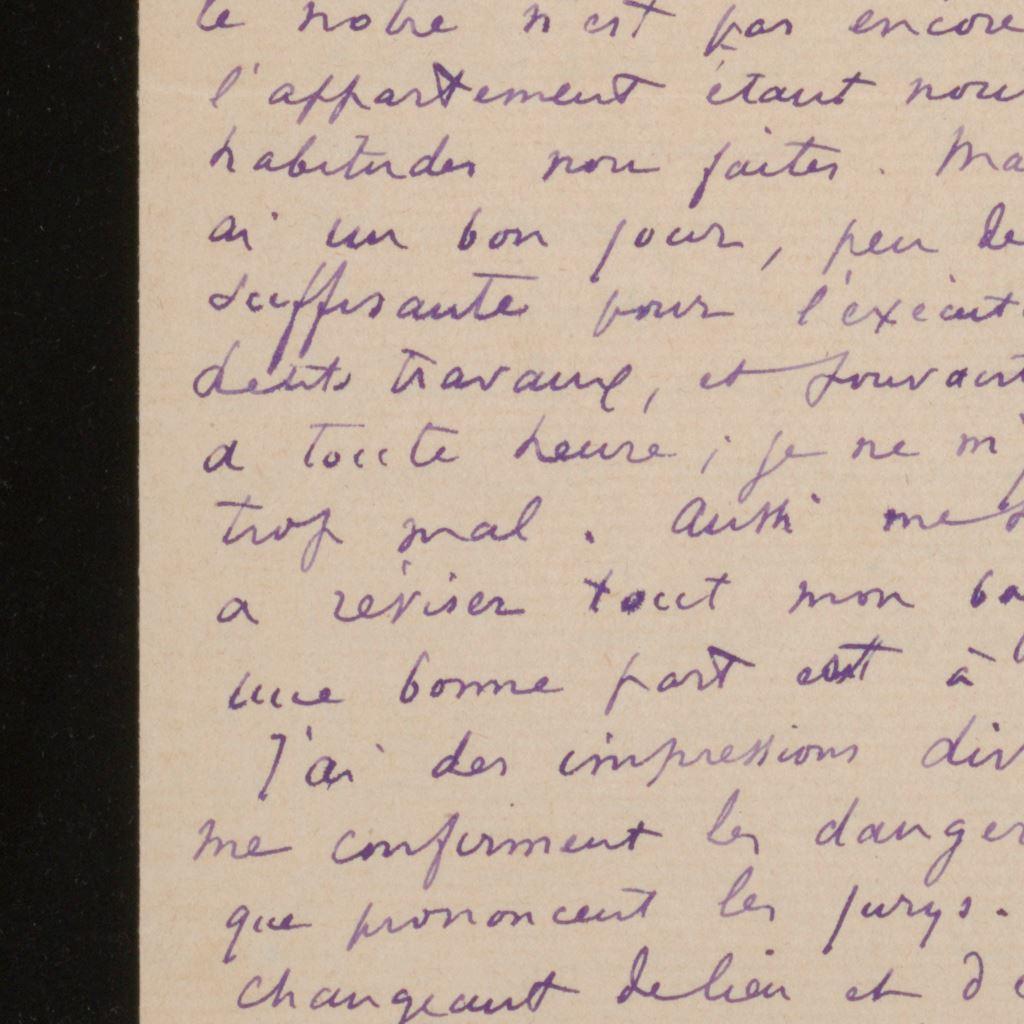 le notre n'est pas encore
l'appartement étant nou
habitudes non faites. Ma
ai un bon jour, peu de
suffisante pour l'exécut
petits travaux, et souvent
a toute heure ; je ne m'
trop mal. Aussi me
a réviser tout mon ba
une bonne part est à
J'ai des impressions div
me confirment les danger
que prononcent les jurys.
changeant de lieu et d